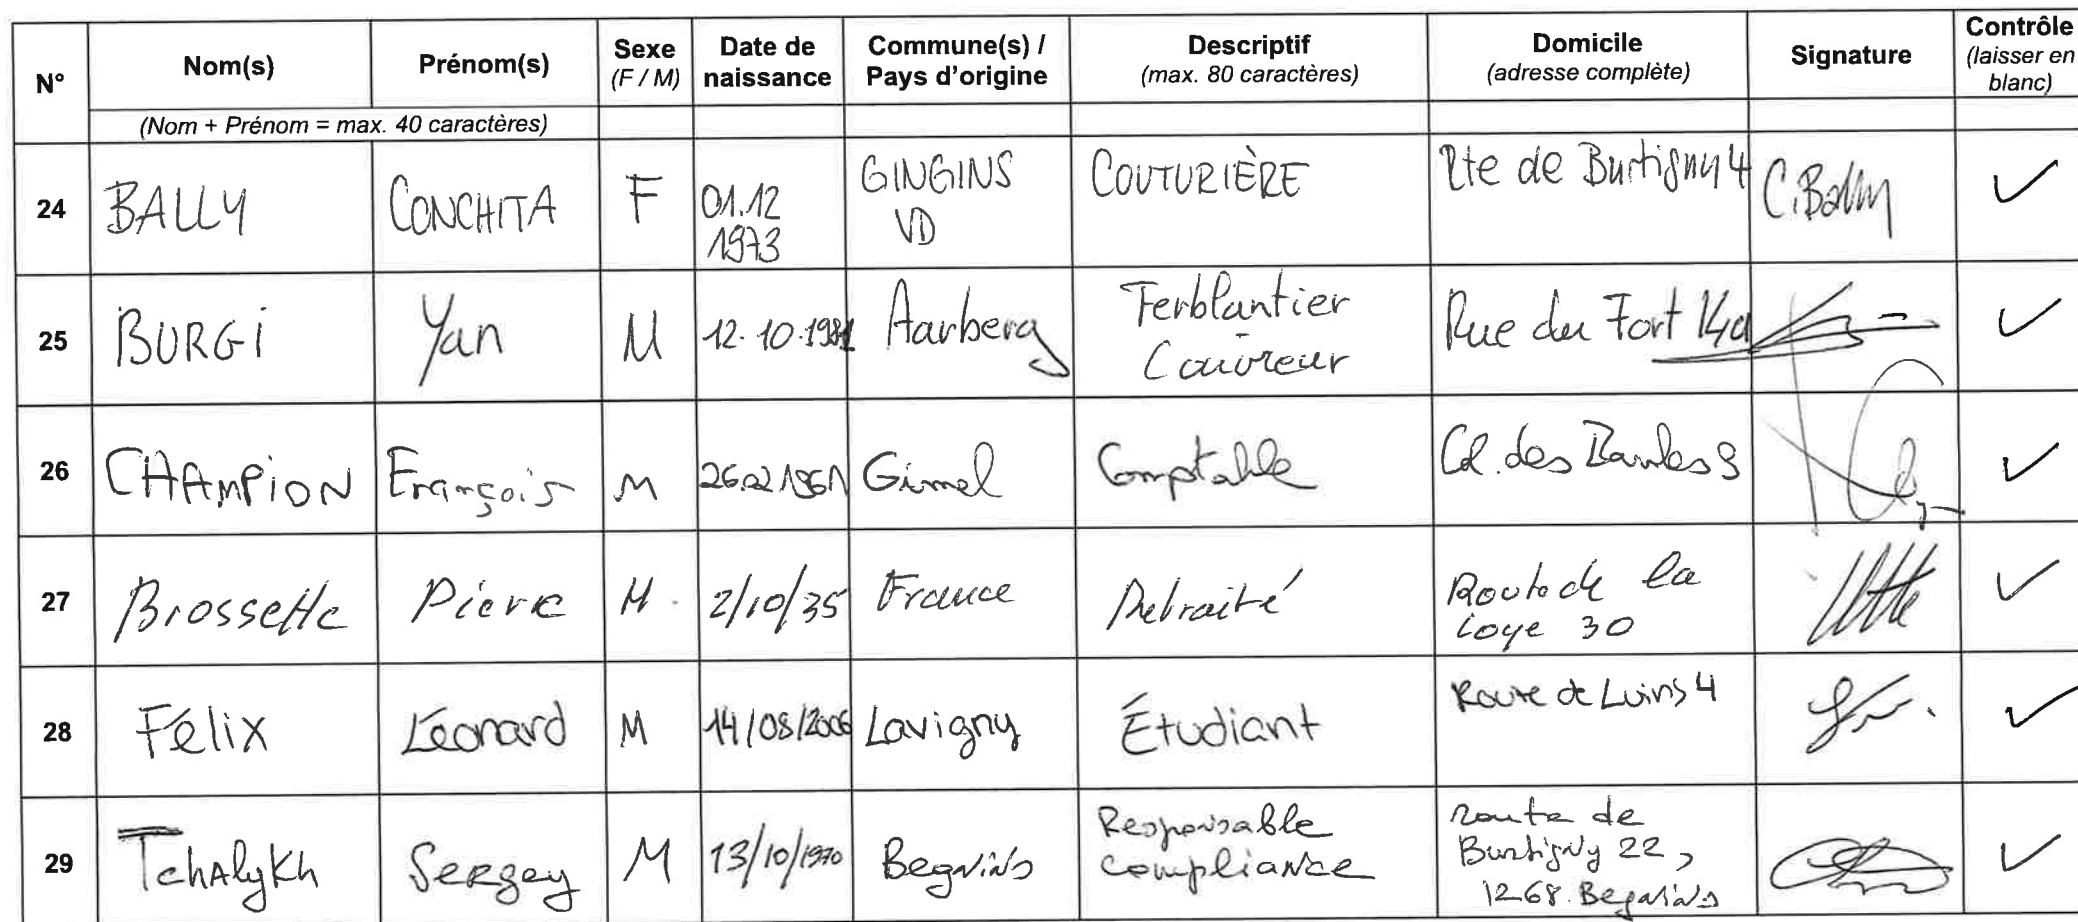 N° Nom(s) Prénom(s) Sexe (F / M) Date de naissance Commune(s) / Pays d'origine Descriptif (max. 80 caractères) Domicile (adresse complète) Signature Contrôle (laisser en blanc)
(Nom + Prénom = max. 40 caractères)
24 BALLY CONCHITA F 01.12 1973 GINGINS VD COUTURIÈRE Rte de Burtigny 4 C. Bally
25 BURGI Yan M 12.10.198 Aarberg Ferblantier Couvreur Rue du Fort 14a
26 CHAMPION François M 26.02.1961 Gimel Comptable des 3
27 Brossette Pierre M. 2/10/35 France Retraité Route de la Coye 30
28 Félix Léonard M 14/08/2006 Lavigny Étudiant Route de Luins 4
29 Tchalykh Sergey M 13/10/1970 Begnins Responsable compliance Route de Burtigny 22, 1268. Begnins